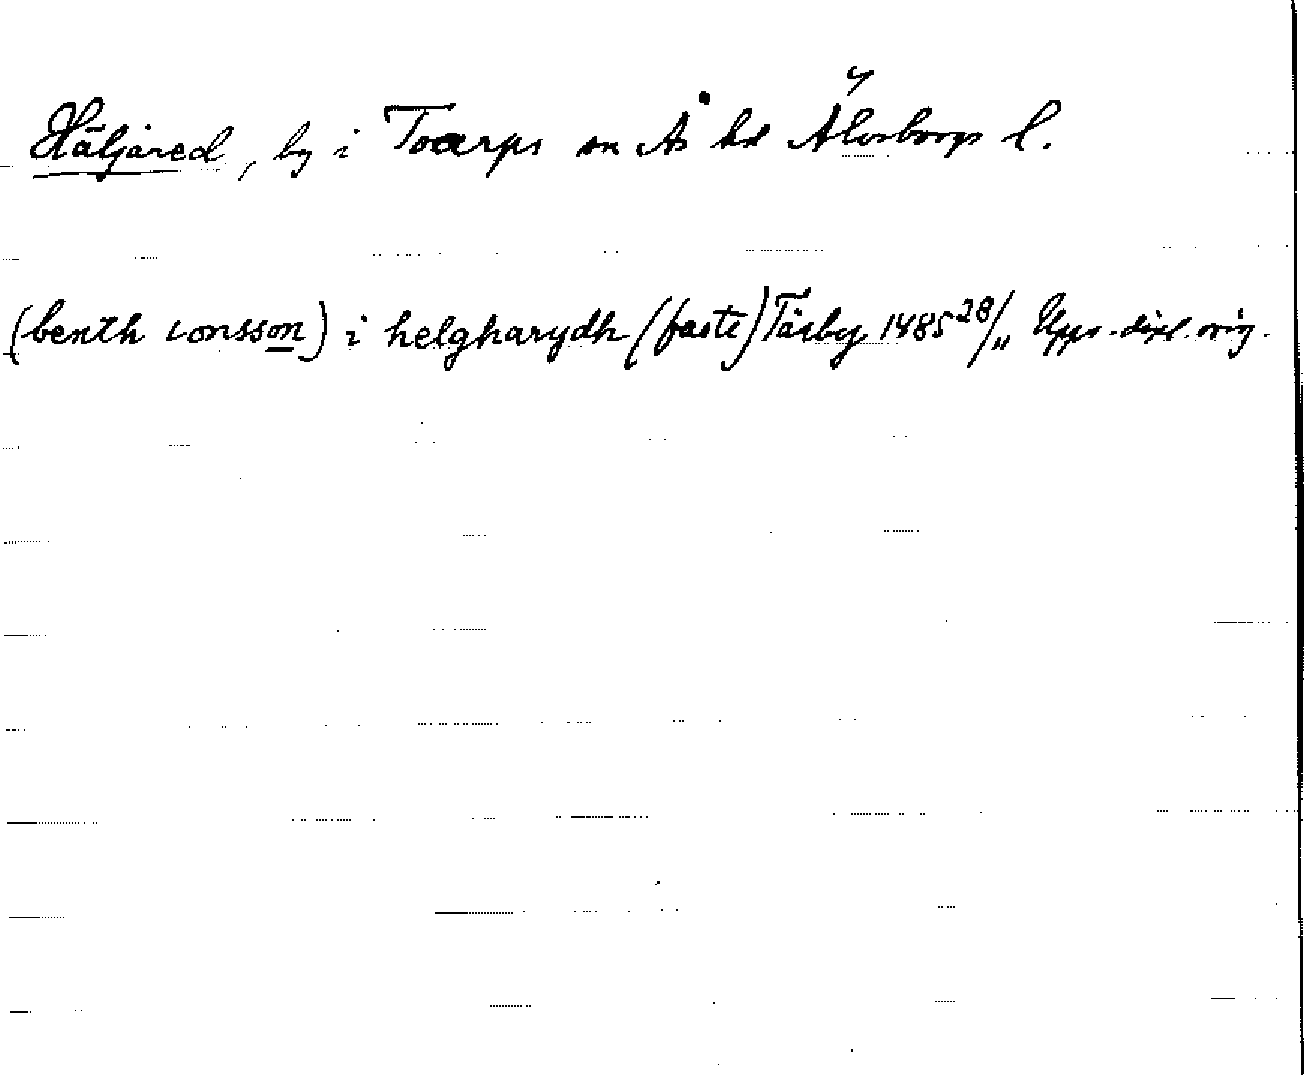 Häljared, by i Toarps sn Ås hd Älvsborgs l.
(benth ionsson) i helgharydh (faste) Tärby 1485 28/11 Upps. dipl. orig.